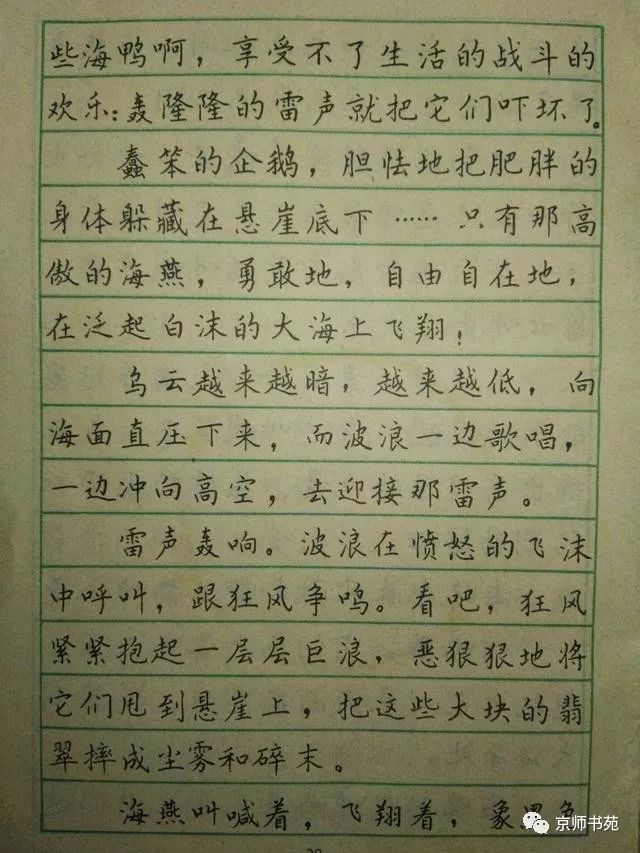 些海鸭啊，享受不了生活的战斗的
欢乐：轰隆隆的雷声就把它们吓坏了。
蠢笨的企鹅，胆怯地把肥胖的
身体躲藏在悬崖底下……只有那高
傲的海燕，勇敢地，自由自在地，
在泛起白沫的大海上飞翔！
乌云越来越暗，越来越低，向
海面直压下来，而波浪一边歌唱，
一边冲向高空，去迎接那雷声。
雷声轰响。波浪在愤怒的飞沫
中呼叫，跟狂风争鸣。看吧，狂风
紧紧抱起一层层巨浪，恶狠狠地将
它们甩到悬崖上，把这些大块的翡
翠摔成尘雾和碎末。
海燕叫喊着，飞翔着，象黑色
京师书苑